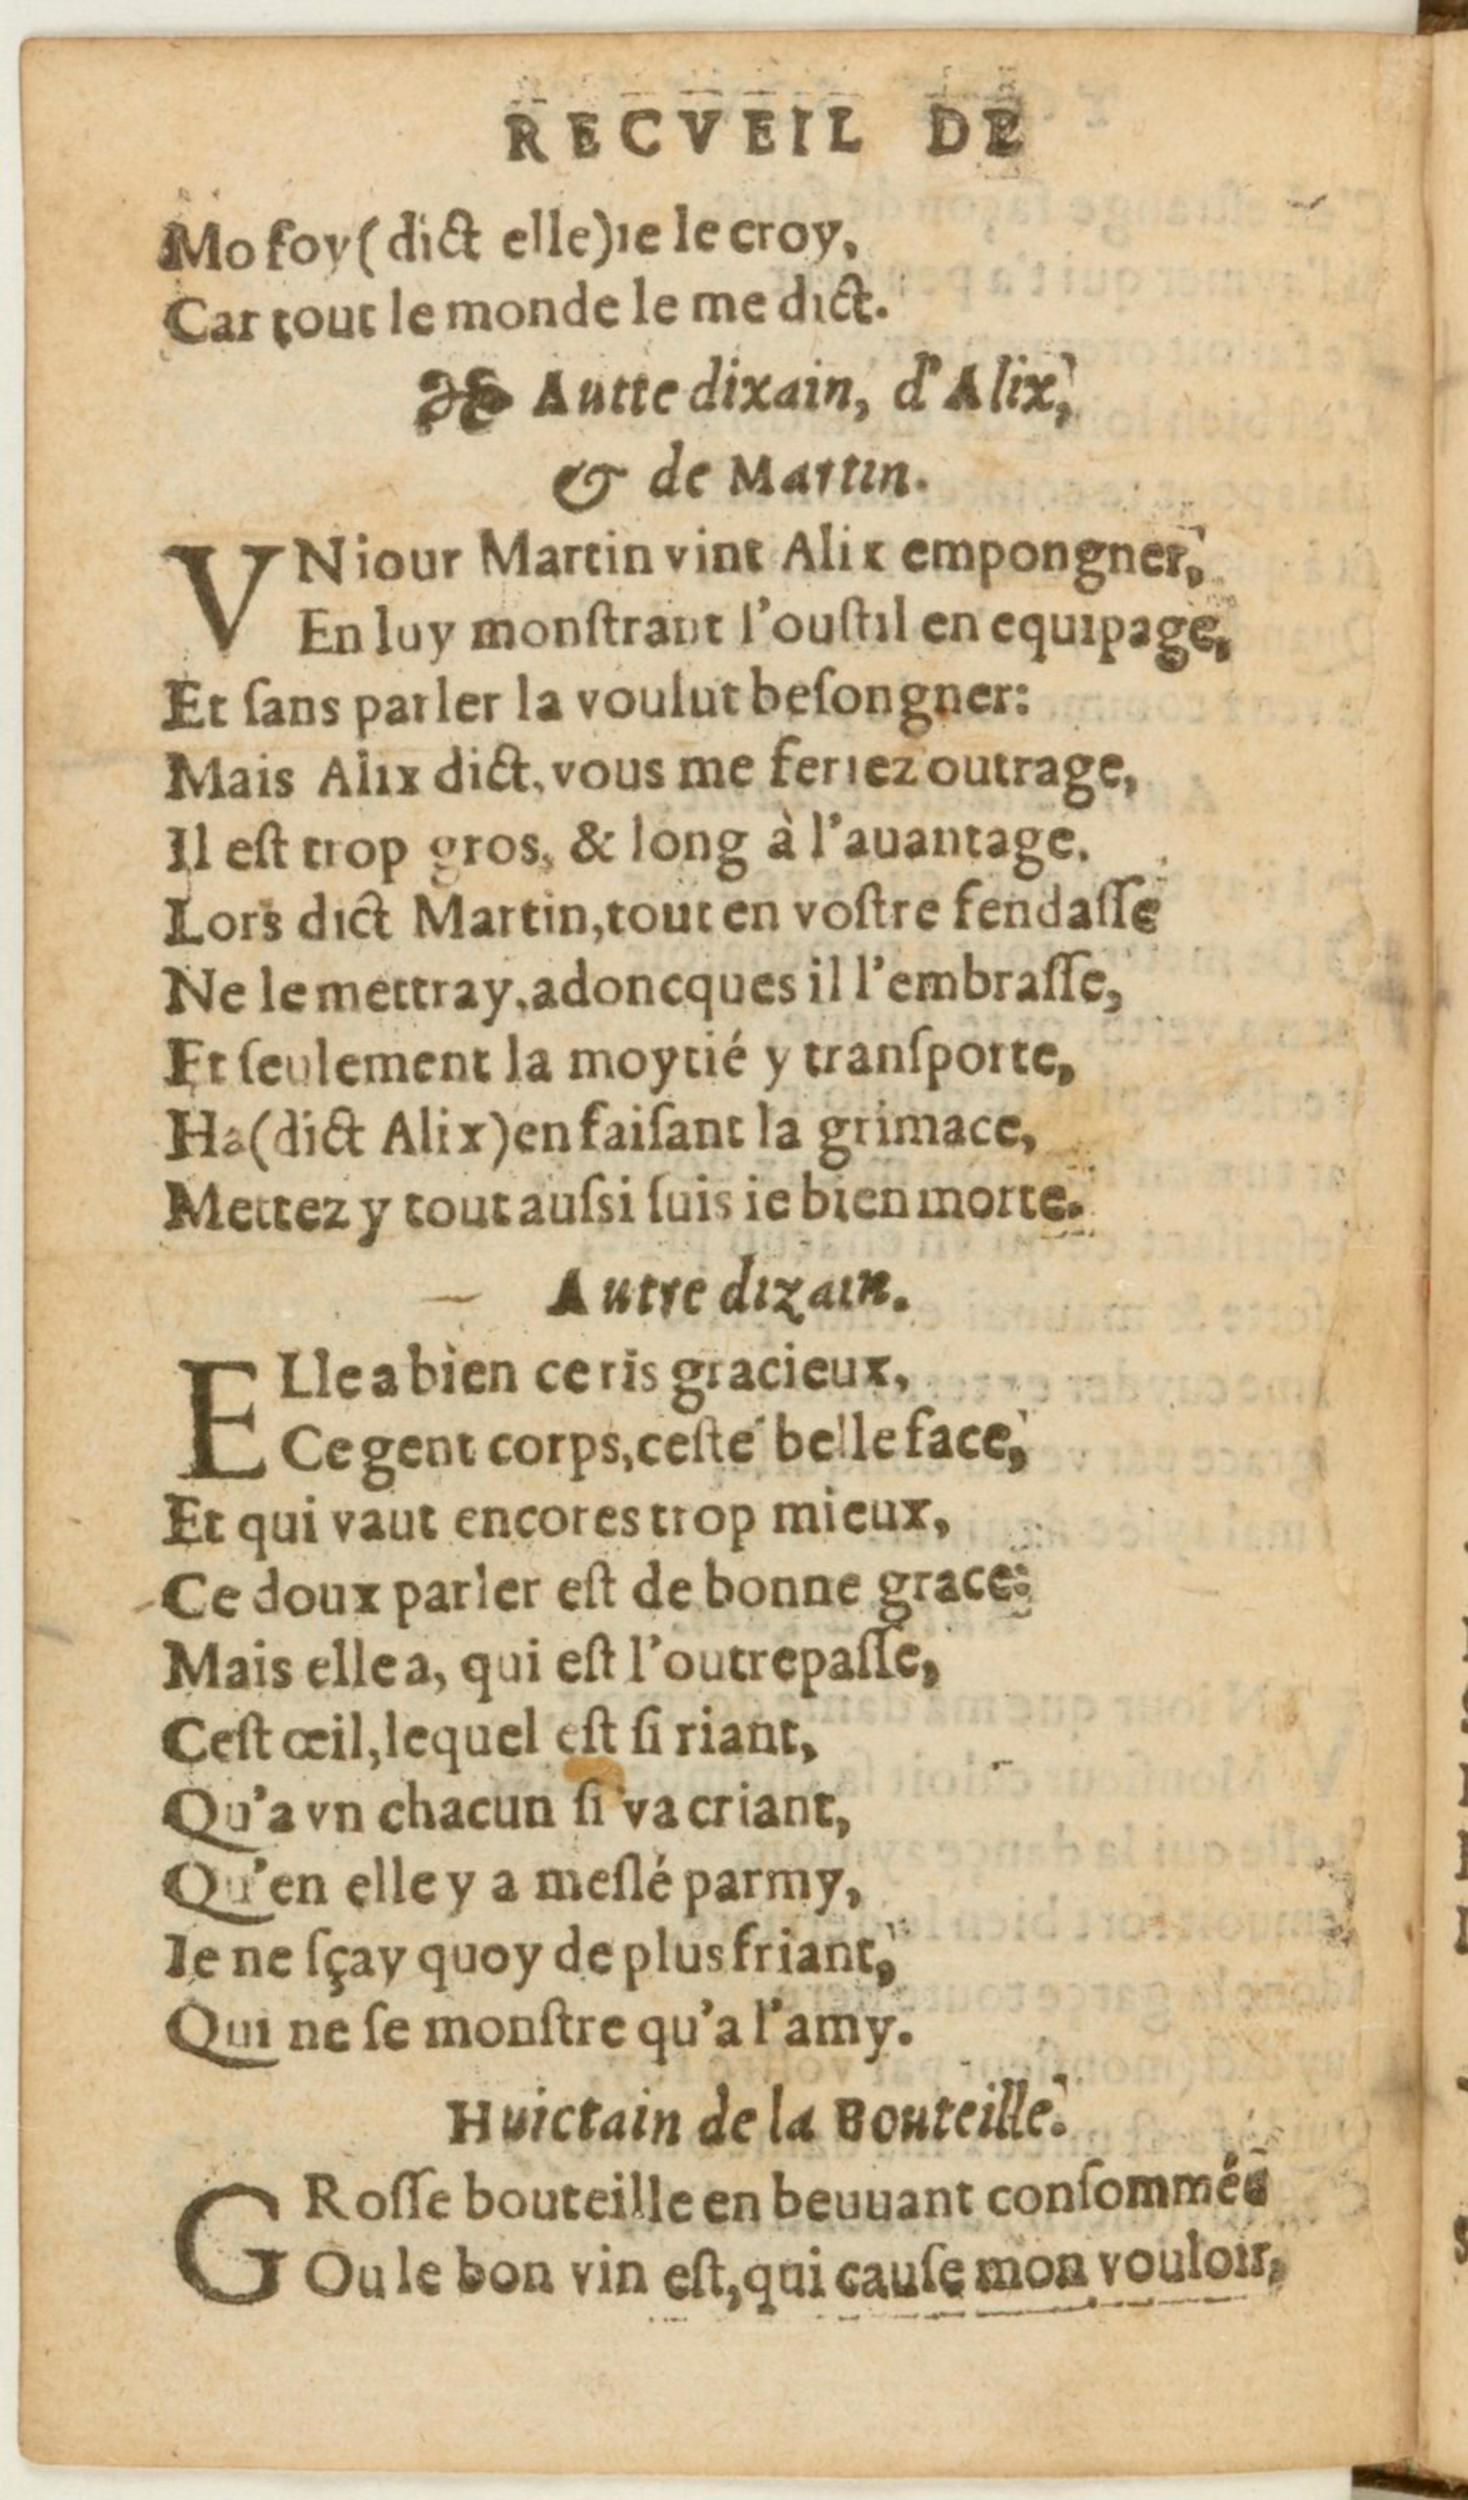 RECVEIL DE
Mo foy (dict elle) ie le croy,
Car tout le monde le me dict.
Autte dixain, d'Alix,
& de Martin.
VN iour Martin vint Alix empongner,
En luy monſtrant l'ouſtil en equipage,
Et ſans parler la voulut beſongner:
Mais Alix dict, vous me feriez outrage,
Il eſt trop gros, & long à l'auantage.
Lors dict Martin, tout en voſtre fendaſſe
Ne le mettray, adoncques il l'embraſſe,
Et ſeulement la moytié y tranſporte,
Ha (dict Alix) en faiſant la grimace,
Mettez y tout auſsi ſuis ie bien morte.
Autre dizain.
ELle a bien ce ris gracieux,
Ce gent corps, ceſte belle face,
Et qui vaut encores trop mieux,
Ce doux parler eſt de bonne grace:
Mais elle a, qui eſt l'outrepaſſe,
Ceſt œil, lequel eſt ſi riant,
Qu'a vn chacun ſi va criant,
Qu'en elle y a meſlé parmy,
Ie ne ſçay quoy de plus friant,
Qui ne ſe monſtre qu'a l'amy.
Huictain de la Bouteille.
GRoſſe bouteille en beuuant conſommée
Ou le bon vin eſt, qui cauſe mon vouloir,